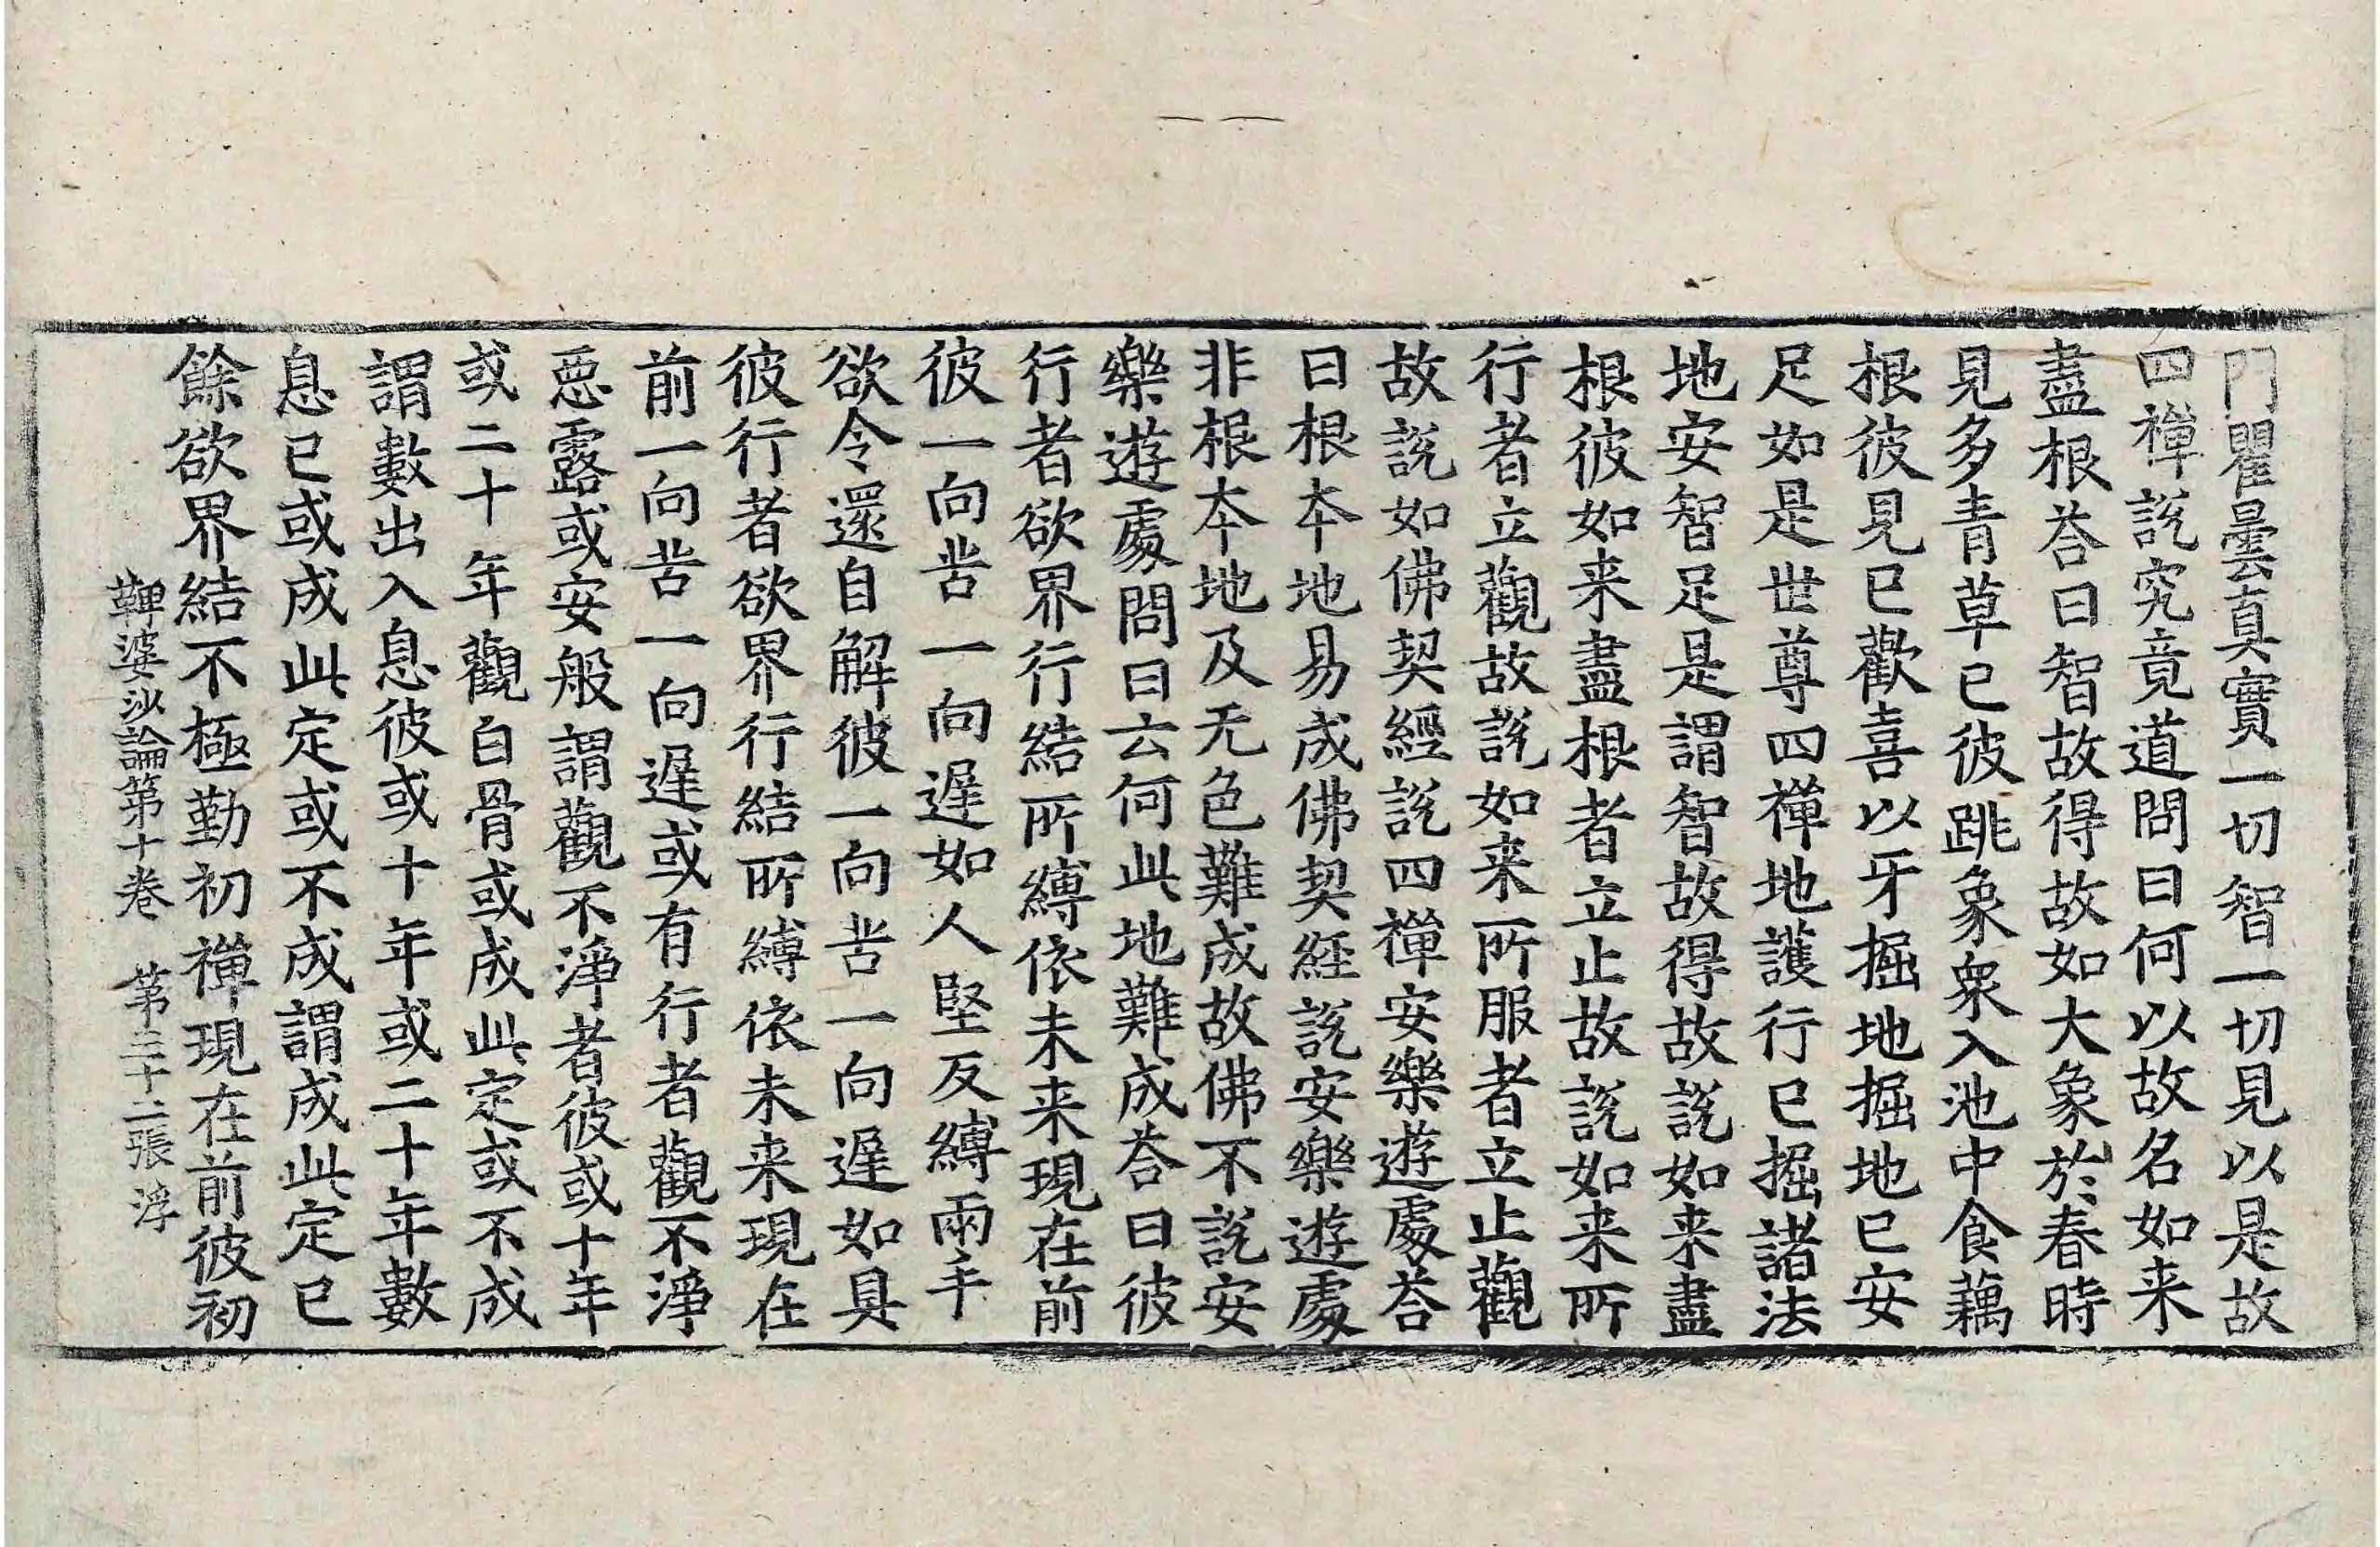 門瞿曇真實一切智一切見以是故
四禪說究竟道問曰何以故名如来
盡根荅曰智故得故如大象於春時
見多青草已彼跳象衆入池中食藕
根彼見已歡喜以牙掘地掘地已安
足如是世尊四禪地護行已掘諸法
地安智足是謂智故得故說如来盡
根彼如来盡根者立止故說如来所
行者立觀故說如来所服者立止觀
故說如佛契經說四禪安樂遊處荅
曰根本地易成佛契経說安樂遊處
非根本地及无色難成故佛不說安
樂遊處問曰云何此地難成荅曰彼
行者欲界行結所縛依未来現在前
彼一向苦一向遲如人堅反縛兩手
欲令還自解彼一向苦一向遲如是
彼行者欲界行結所縛依未来現在
前一向苦一向遲或有行者觀不淨
惡露或安般謂觀不淨者彼或十年
或二十年觀白骨或成此定或不成
謂數出入息彼或十年或二十年數
息已或成此定或不成謂成此定已
餘欲界結不極勤初禪現在前彼初
鞞婆沙論第十卷 第三十二張 浮